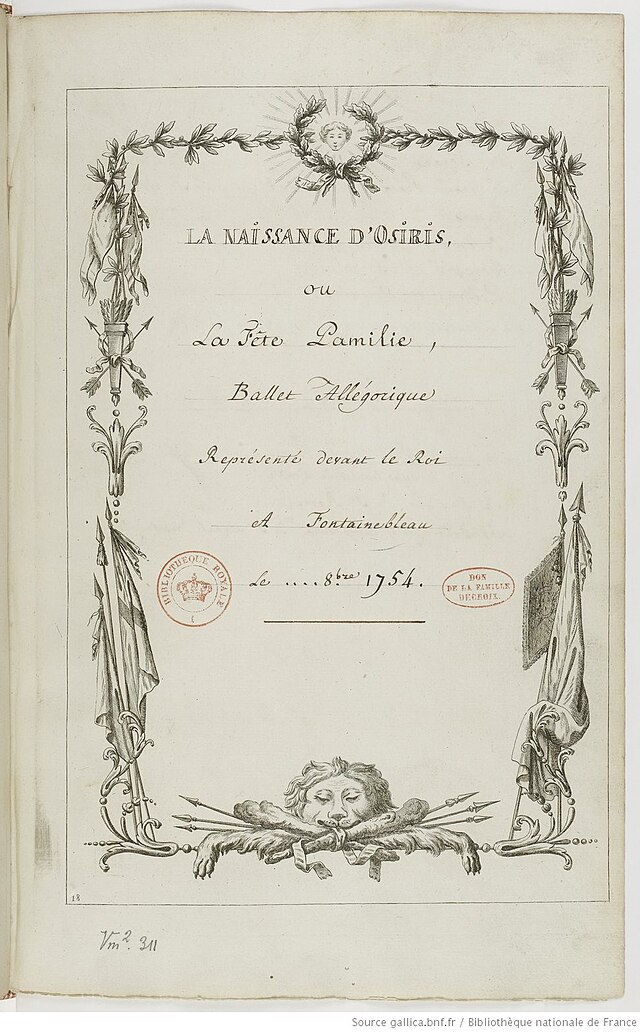 LA NAISSANCE D'OSIRIS,
ou
La Fête Pamilie,
Ballet Allégorique
Représenté devant le Roi
A Fontainebleau
Le .... 8.bre 1754.
BIBLIOTHEQUE ROYALE
DON
DE LA FAMILLE
DECROIX.
18
Vm². 311
Source gallica.bnf.fr / Bibliothèque nationale de France